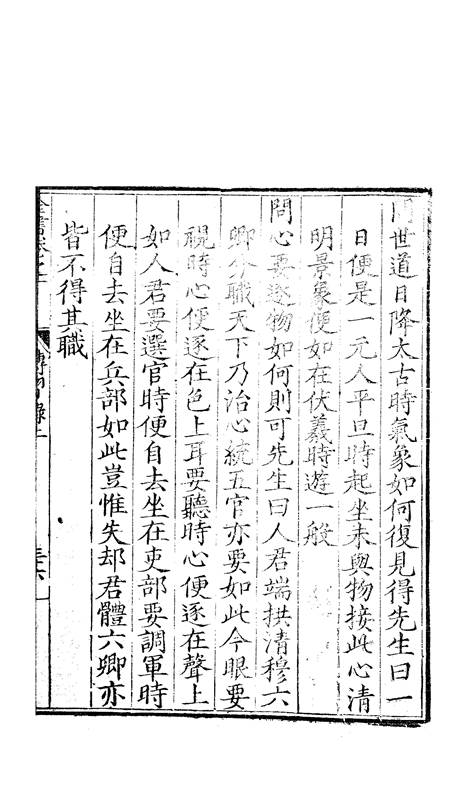 問世道日降太古時氣象如何復見得先生曰一
日便是一元人平旦時起坐未與物接此心清
明景象便如在伏羲時遊一般
問心要逐物如何則可先生曰人君端拱清穆六
卿分職天下乃治心統五官亦要如此今眼要
視時心便逐在色上耳要聽時心便逐在聲上
如人君要選官時便自去坐在吏部要調軍時
便自去坐在兵部如此豈惟失却君體六卿亦
皆不得其職
傳習錄上
三六